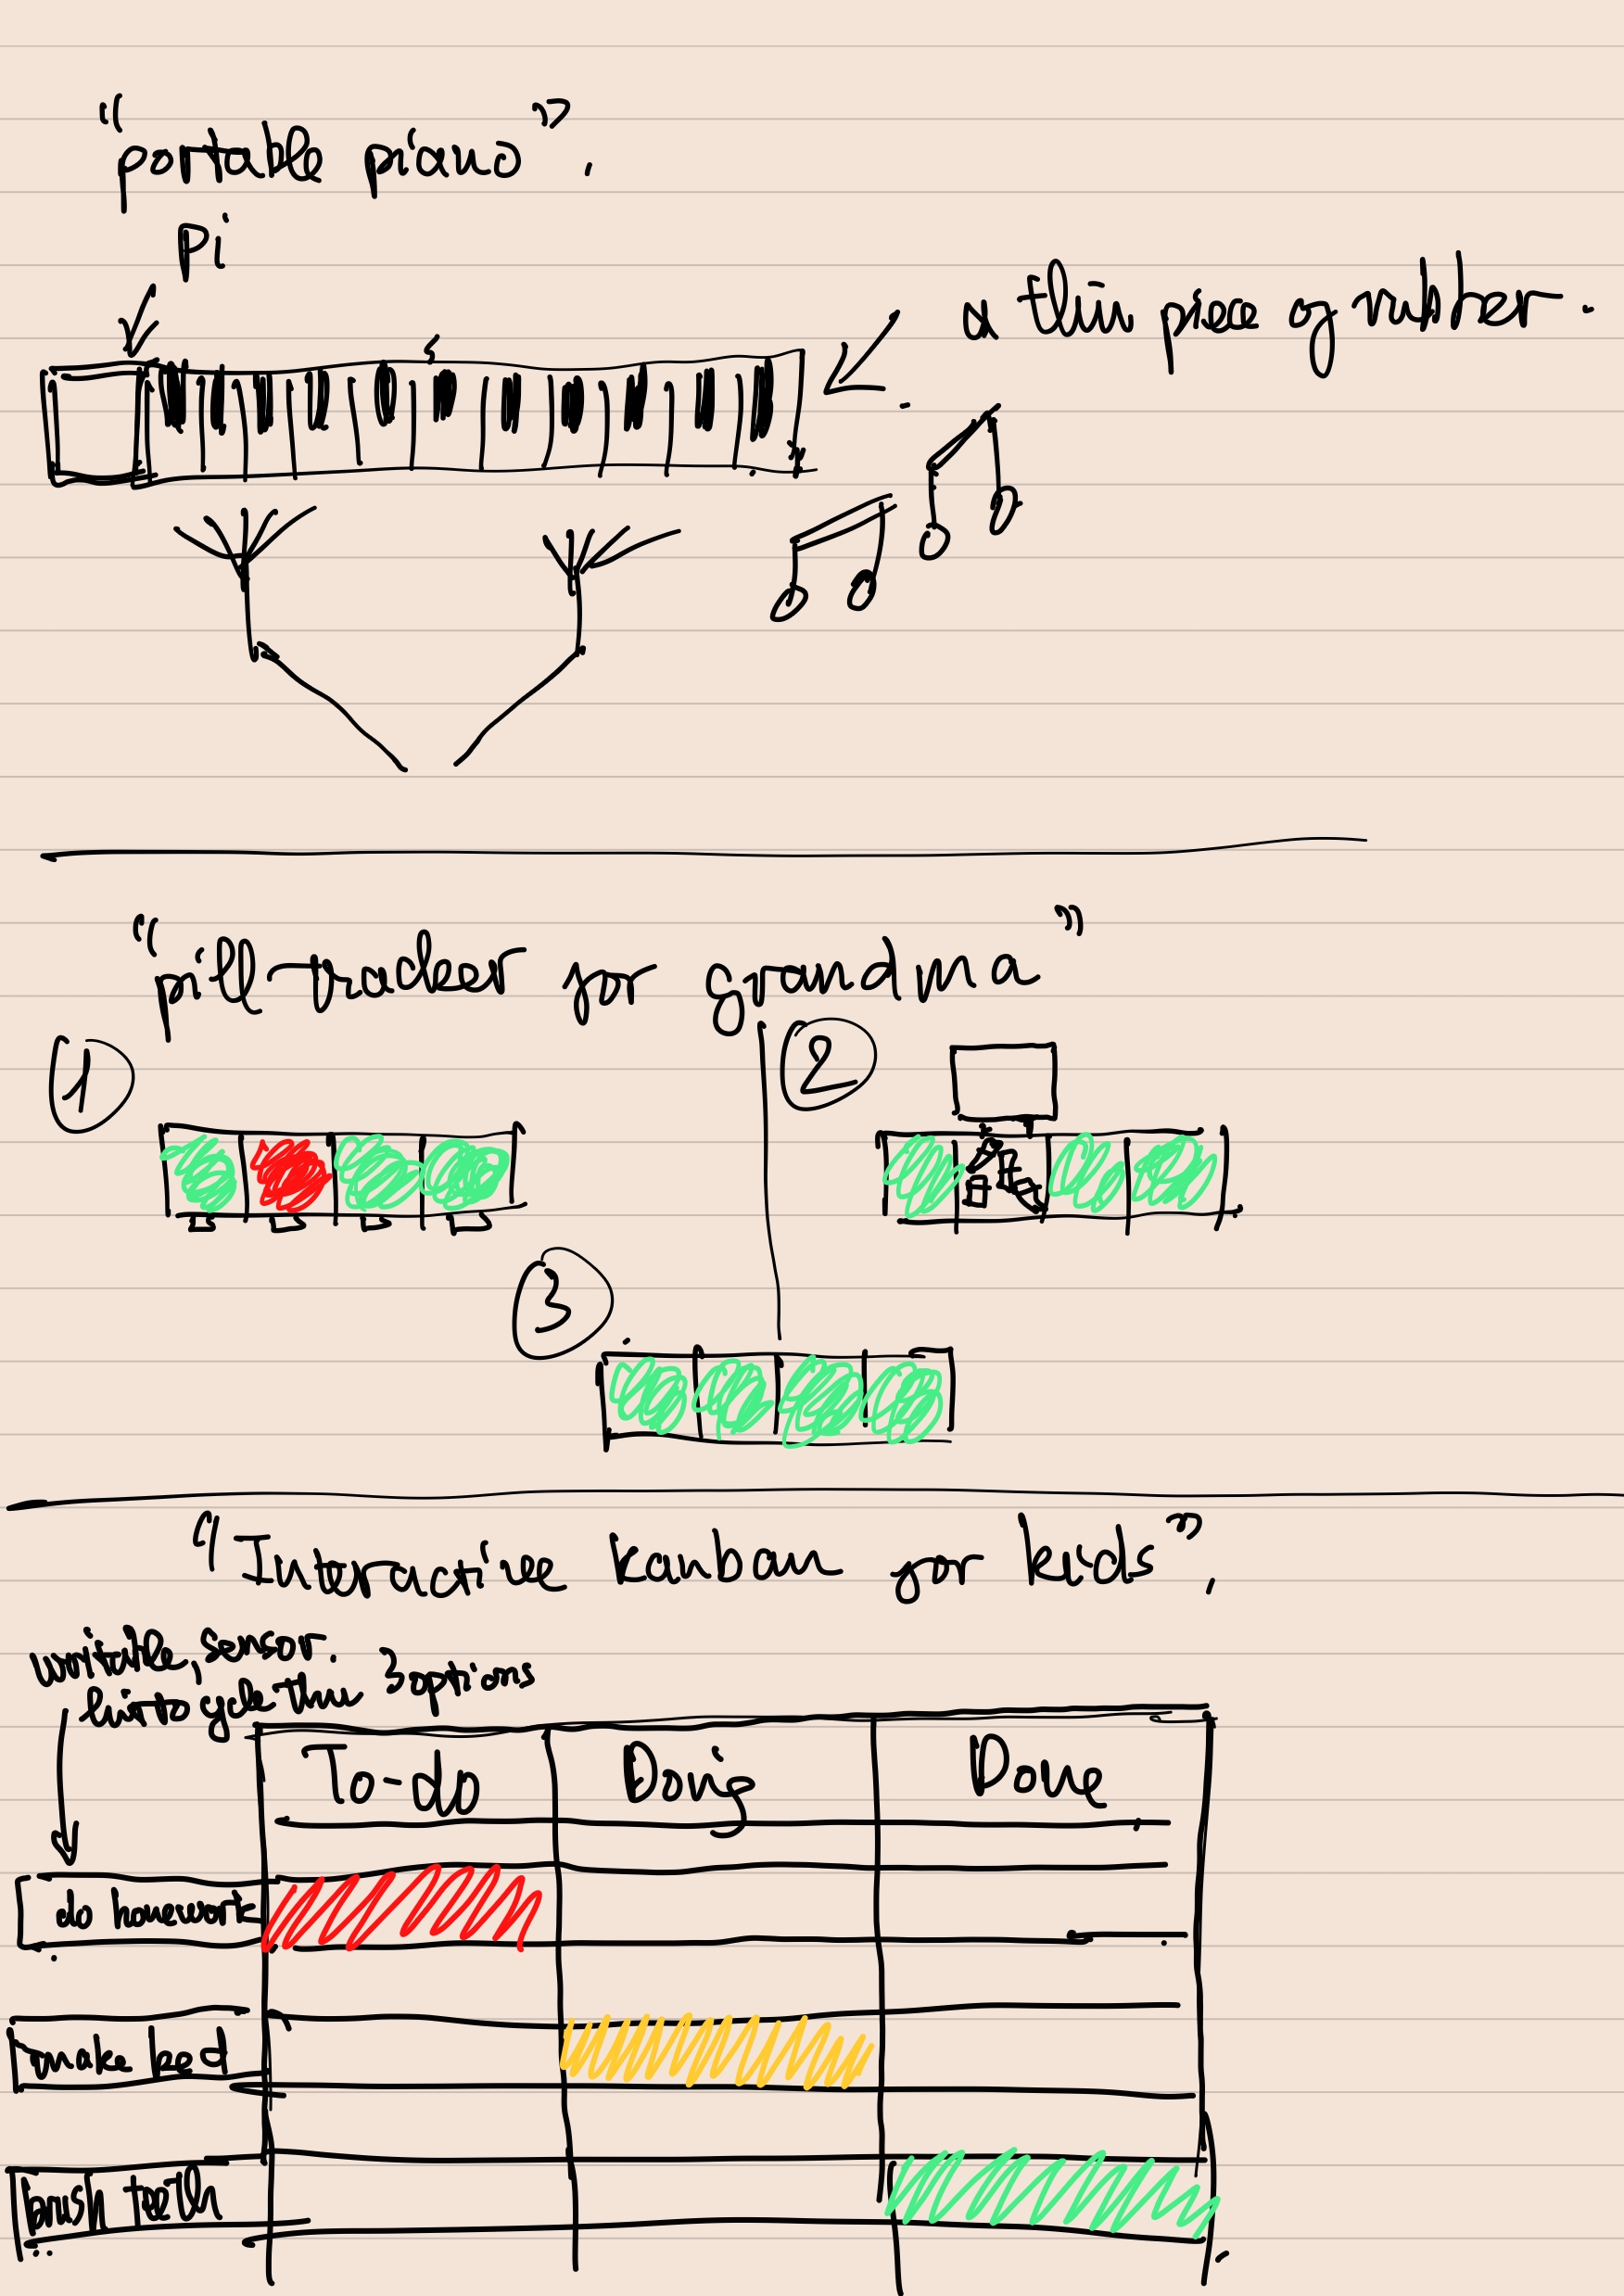 "portable piano".
Pi
a thin piece of rubber.
"pill-tracker for grandma"
1
2
3
"Interactive kanban for kids".
writable sensor.
hit to cycle thru 3 options
To-do Doing Done
do homework
make bed
brush teeth